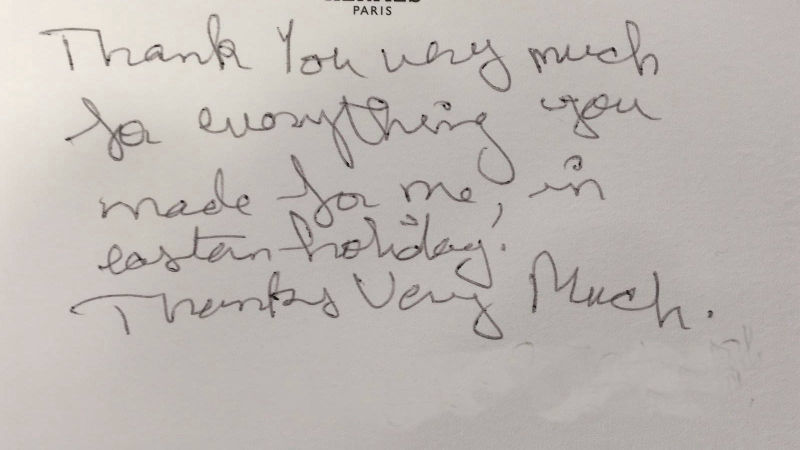 HERMES
PARIS
Thank You very much
for everything you
made for me, in
eastan holiday.
Thanks Very Much.